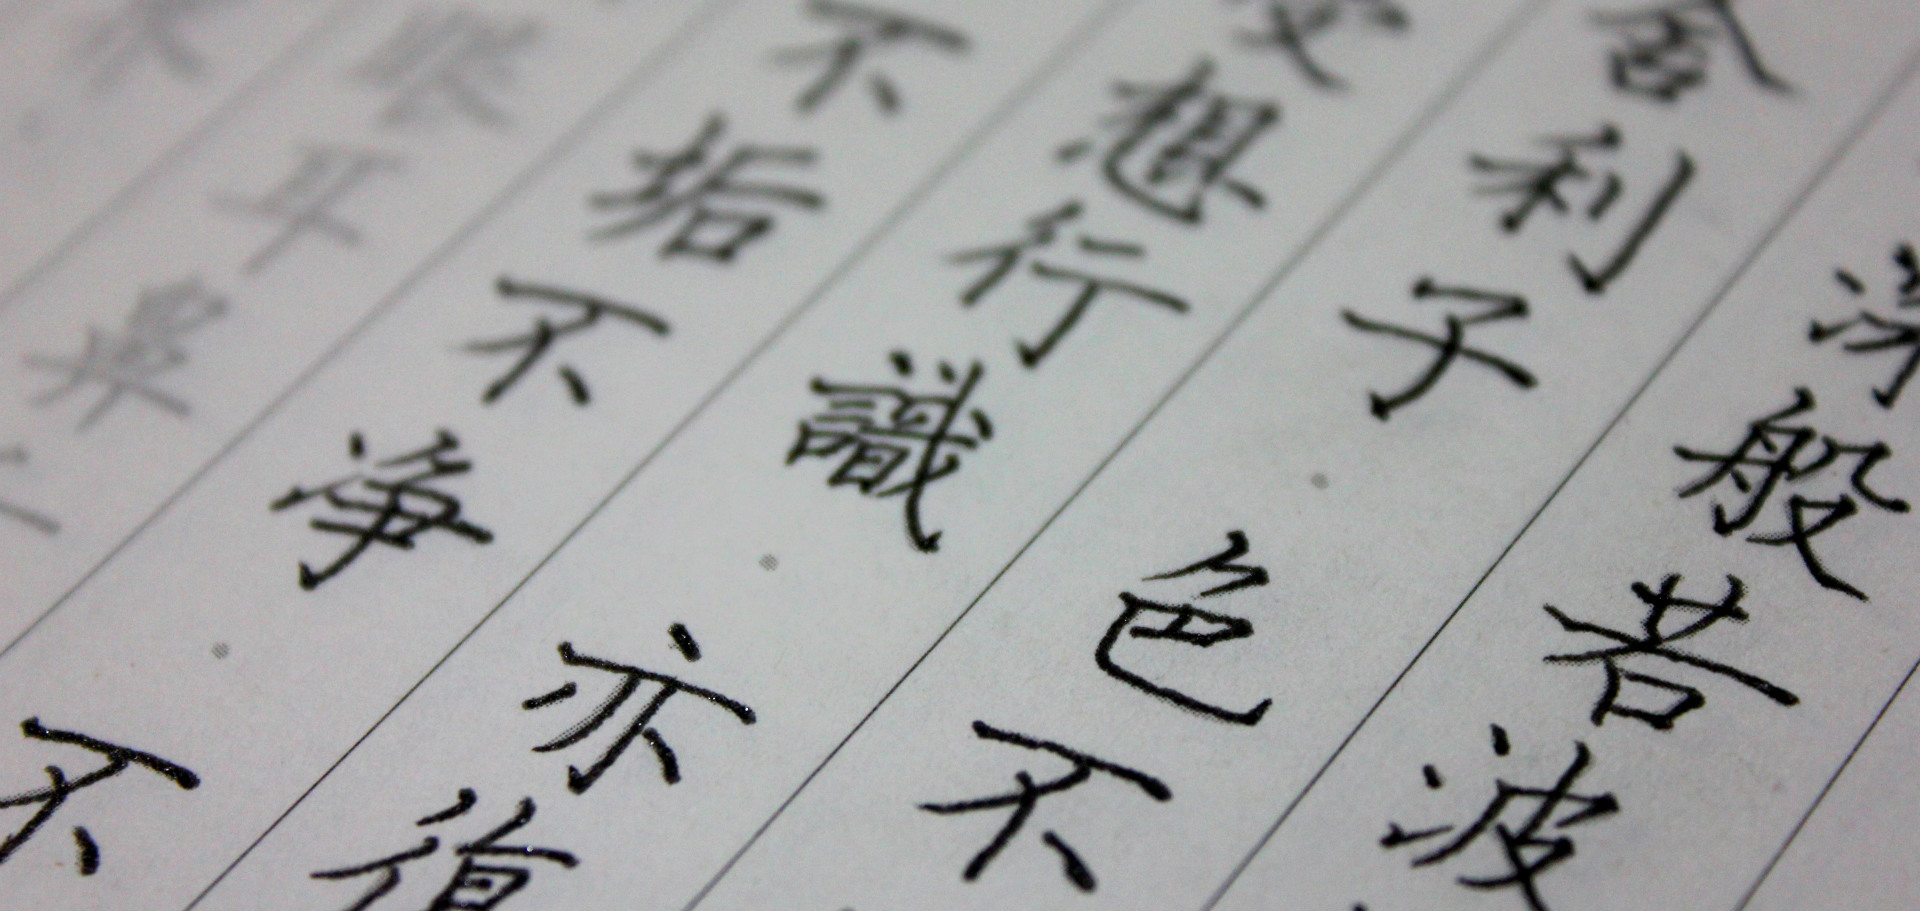 深般若波
舎利子 色不
想行識 亦復
不垢不浄 不
眼耳鼻